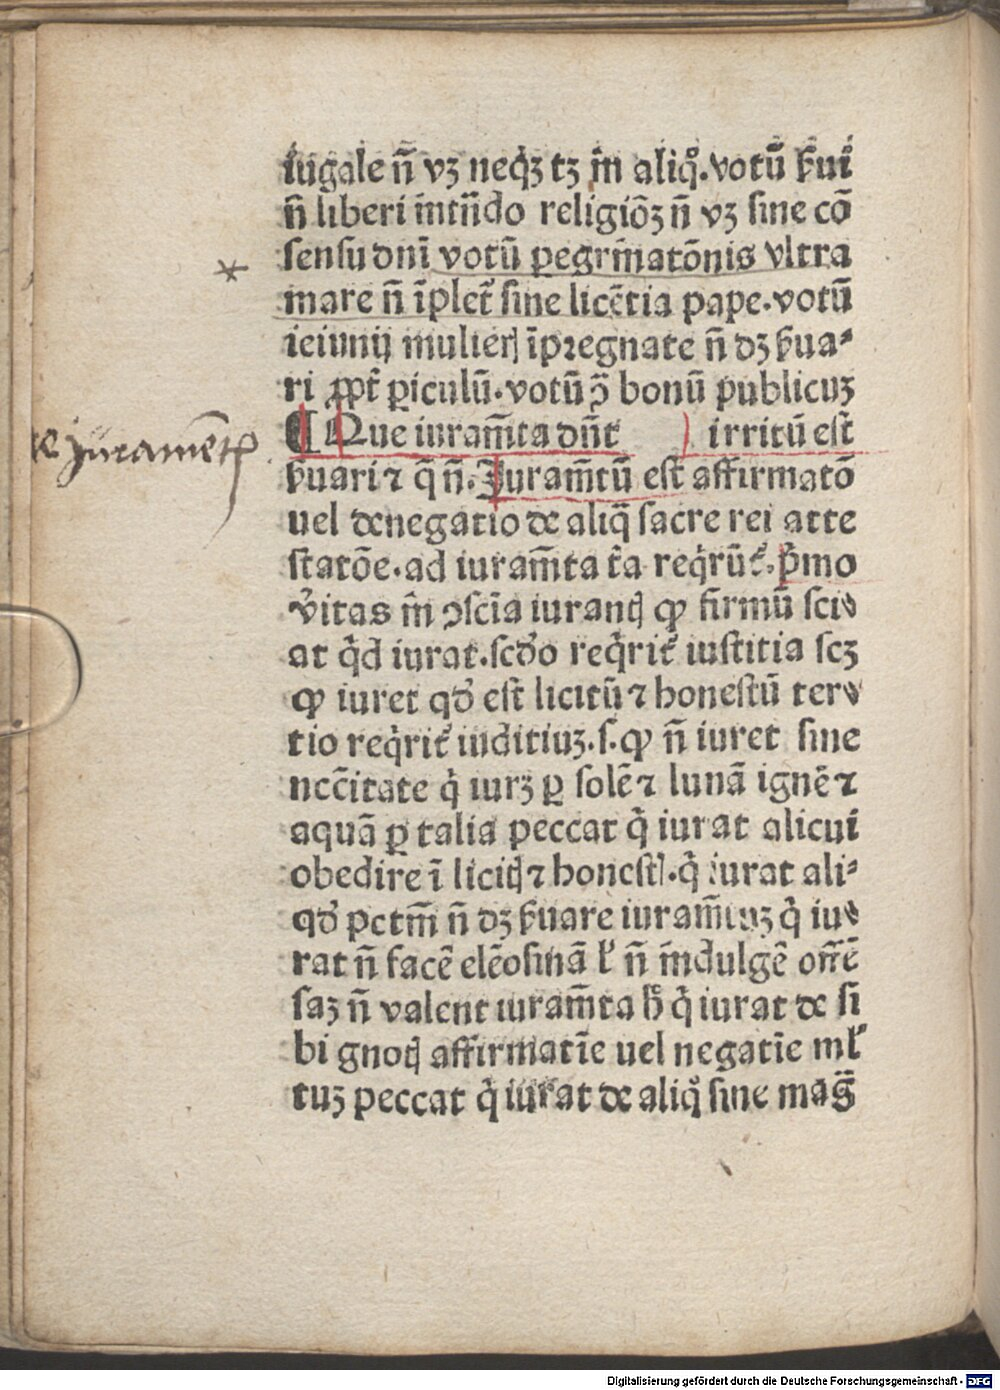 iugale n̄ vꝫ neqꝫ tꝫ m̄ aliqͦ. votū ẜui
n̄ liberi intn̄do religiōꝫ n̄ vꝫ sine cō
sensu dnī votū ꝑegrīnatōnis vltra
mare n̄ īplet᷑ sine licētia pape. votū
ieiunij mulierꝭ īpregnate n̄ dꝫ ẜua⸗
ri ꝓpt̄ ꝑiculū. votū ꝯ̄ bonū publicuꝫ
¶ Que iuram̄ta dn̄t ) irritū est
ẜuari ⁊ q̄ n̄. Juram̄tū est affirmatō
uel denegatio de aliq̄ sacre rei atte
statōe. ad iuram̄ta t̄a reqͥrūt᷑. pͥmo
v̓itas in ꝯscīa iurantꝭ ꝙ firmū sci⸗
at qͥd iurat. scd̓o reqͥrit᷑ iustitia scꝫ
ꝙ iuret qd̓ est licitū ⁊ honestū ter⸗
tio reqͥrit᷑ iuditiuꝫ. s. ꝙ n̄ iuret sine
ncc̄itate qͥ iurꝫ ꝑ solē ⁊ lunā ignē ⁊
aquā ꝑ talia peccat qͥ iurat alicui
obedire ī licitꝭ ⁊ honestꝭ. qͥ iurat ali⸗
qd̓ pctm̄ n̄ dꝫ ẜuare iuram̄tuꝫ qͥ iu⸗
rat n̄ facē elēosinā ł n̄ indulgē offē
saꝫ n̄ valent iuram̄ta hͦ qͥ iurat de si
bi gnotꝭ affirmatīe uel negatīe mł
tuꝫ peccat qͥ iurat de aliqͦ sine maḡ
*
Juramētꝭ
Digitalisierung gefördert durch die Deutsche Forschungsgemeinschaft - DFG